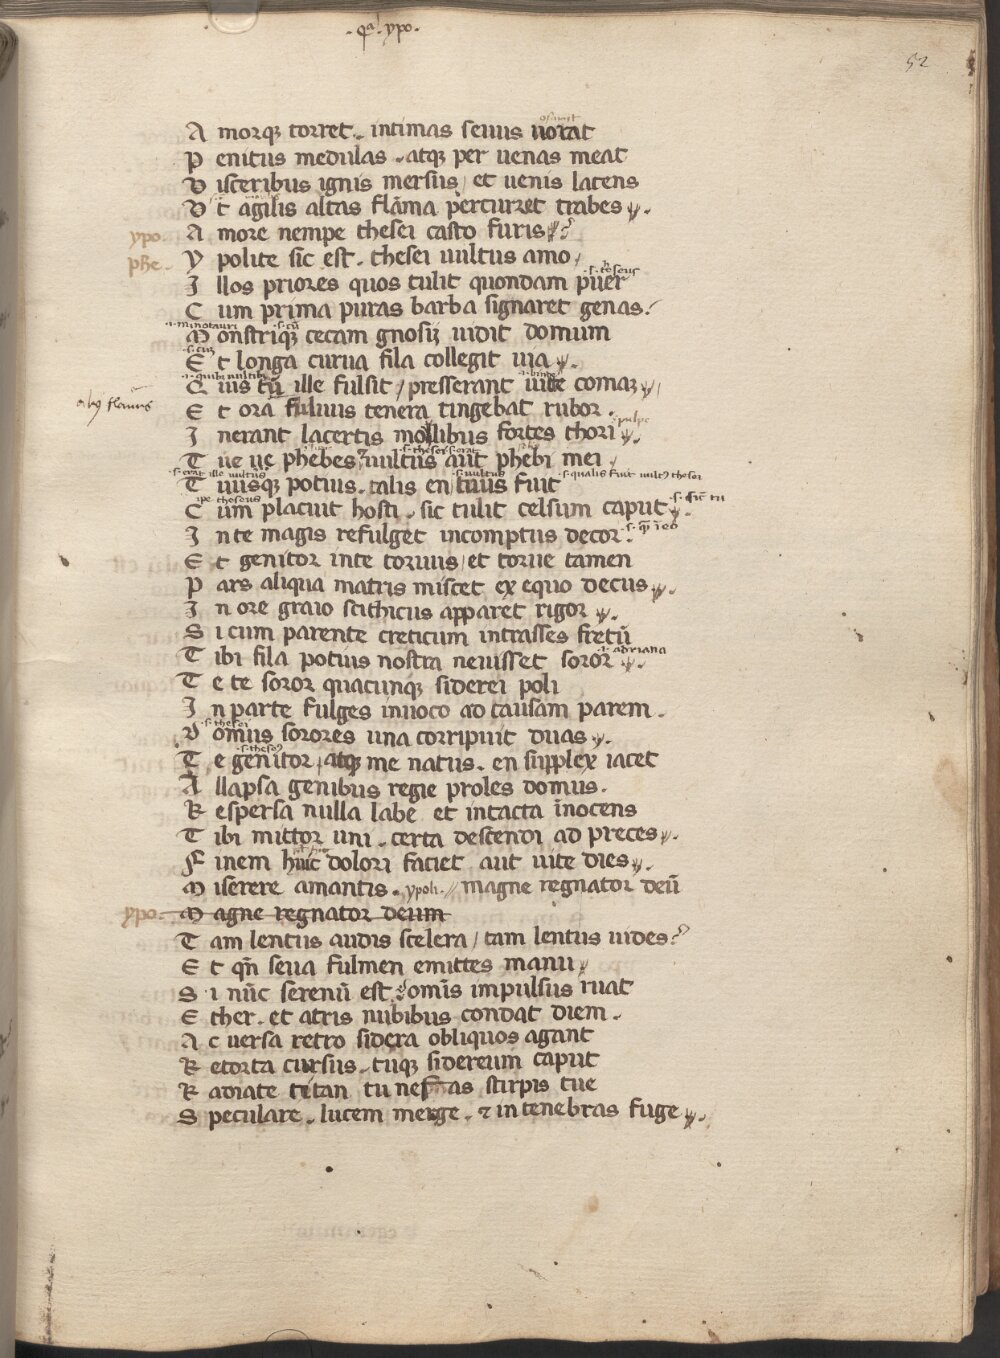 ·qᵃ· ypo·
52
A morqꝫ torret. intimas seuus uorat
P enitus medulas . atqꝫ per uenas meat
V isceribus ignis mersus / et uenis latens
V t agilis altas flāma percurret trabes
ypo· A more nempe thesei casto furis?
phe· Y polite sic est. thesei uultus amo /
s. theseus
I llos priores quos tulit quondam puer
C um prima puras barba signaret genas
.i. minotauri
M onstriqꝫ cecam gnosij uidit domum
E t longa curua fila collegit uia
Q uis tū ille fulsit / presserant uitte comaꝫ
E t ora fuluus tenera tingebat rubor .
I nerant lacertis mollibus fortes thori
T ue ue phebes uultus aut phebi mei /
s. erat ille uultus s. uultus s. qualis fuit uultꝰ thesei
T uusqꝫ potius. talis en tuus fuit
ipe theseus
C um placuit hosti . sic tulit celsum caput
I n te magis refulget incomptus decor .
E t genitor in te toruus / et torue tamen
P ars aliqua matris miscet ex equo decus
I n ore graio scithicus apparet rigor
S i cum parente creticum intrasses fretū
.i. adriana
T ibi fila potius nostra neuisset soror
T e te soror quacunqꝫ siderei poli
I n parte fulges inuoco ad causam parem .
s. thesei
D omus sorores una corripuit duas
s. theseꝰ
T e genitor / atqꝫ me natus. en supplex iacet
A llapsa genibus regie proles domus.
R espersa nulla labe et intacta īnocens
T ibi mittor uni . certa descendi ad preces
F inem huic dolori faciet aut uite dies
M iserere amantis. ypoli. // magne regnator deū
ypo· M agne regnator deum
T am lentus audis scelera / tam lentus uides?
E t qn̄ seua fulmen emittes manu /
S i nūc serenū est. omīs impulsus ruat
E ther. et atris nubibus condat diem .
A c uersa retro sidera obliquos agant
R etorta cursus. tuqꝫ sidereum caput
R adiate titan tu nefas stirpis tue
S peculare . lucem merge . ⁊ in tenebras fuge